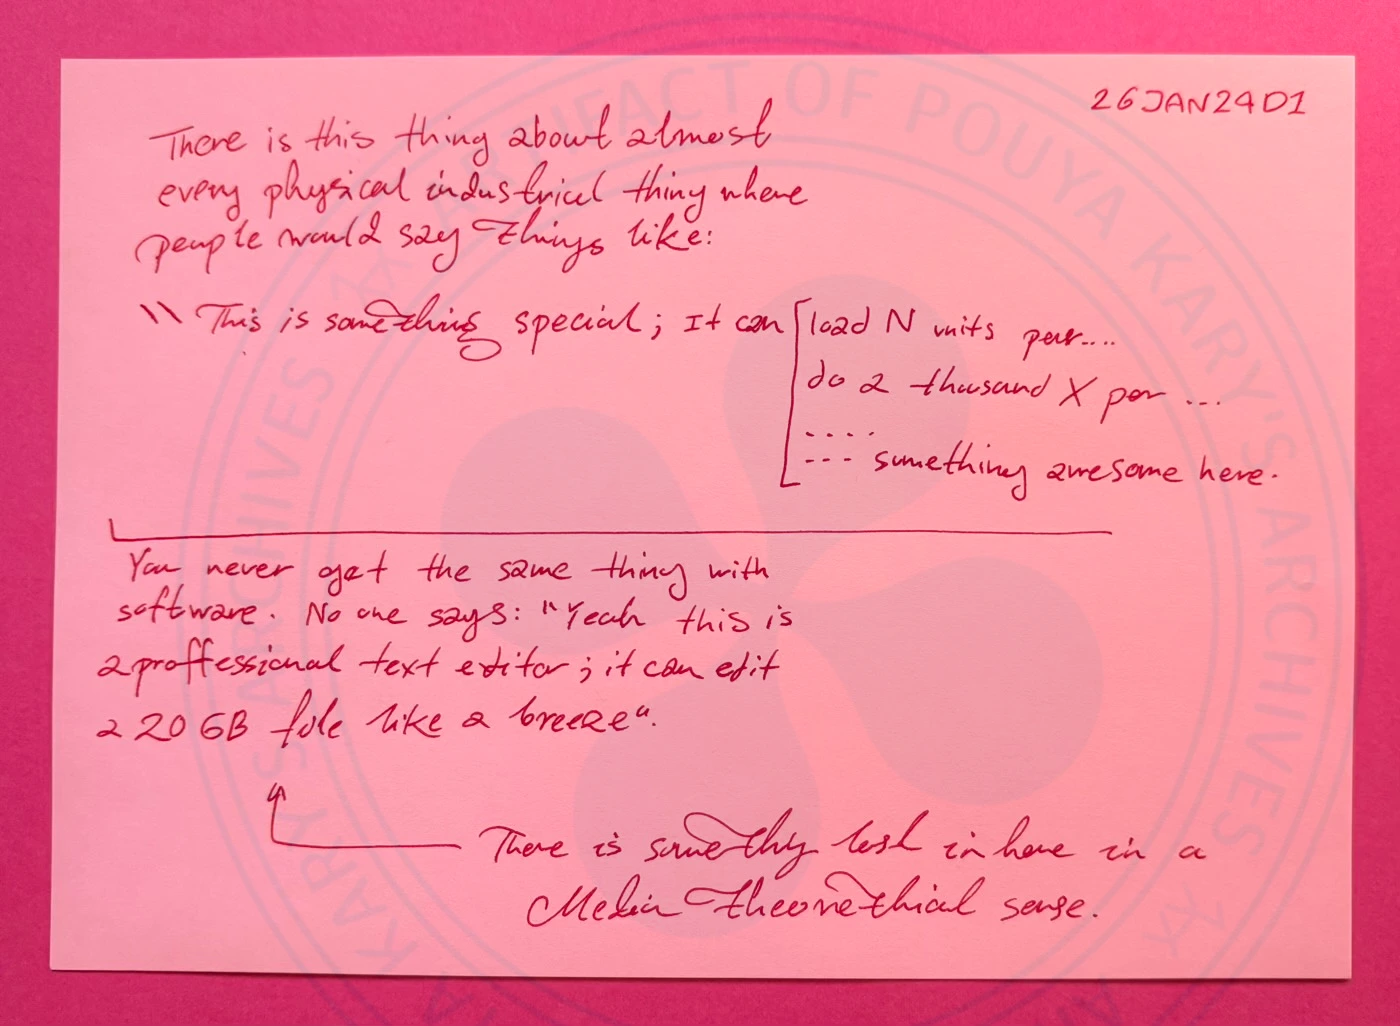 26JAN24D1
There is this thing about almost
every physical industrical thing where
people would say things like:
"This is something special; It can
load N units per....
do 2 thousand X per ...
....
--- something awesome here.
You never get the same thing with
software. No one says: "Yeah this is
a proffessional text editor; it can edit
a 20 GB file like a breeze".
There is something lost in here in a
Media-theorethical sense.
ARTIFACT OF POUYA KARY'S ARCHIVES
KARY'S ARCHIVES